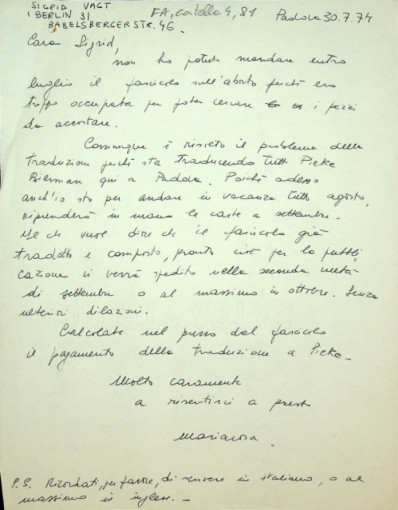 SIGRID VAGT
1 BERLIN 31
BABELSBERGERSTR. 46.
FA, cartella 4, 81
Padova 30.7.74
Cara Sigrid,
non ho potuto mandare entro
luglio il fascicolo sull'aborto perché ero
troppo occupata per poter i pezzi
da accostare.
Comunque è risolto il problema della
traduzione perché sta traducendo tutto Pieke
Biermann qui a Padova. Poiché adesso
anch'io sto per andare in vacanza tutto agosto,
riprenderò in mano le carte a settembre.
Il che vuol dire che il fascicolo già
tradotto e composto, pronto cioè per la pubbli
cazione vi verrà spedito nella seconda metà
di settembre o al massimo in ottobre. Senza
ulteriori dilazioni.
Calcolate nel prezzo del fascicolo
il pagamento della traduzione a Pieke.
Molto caramente
a risentirci a presto
Mariarosa.
P.S. Ricordati, per favore, di scrivere in italiano, o al
massimo in inglese. _